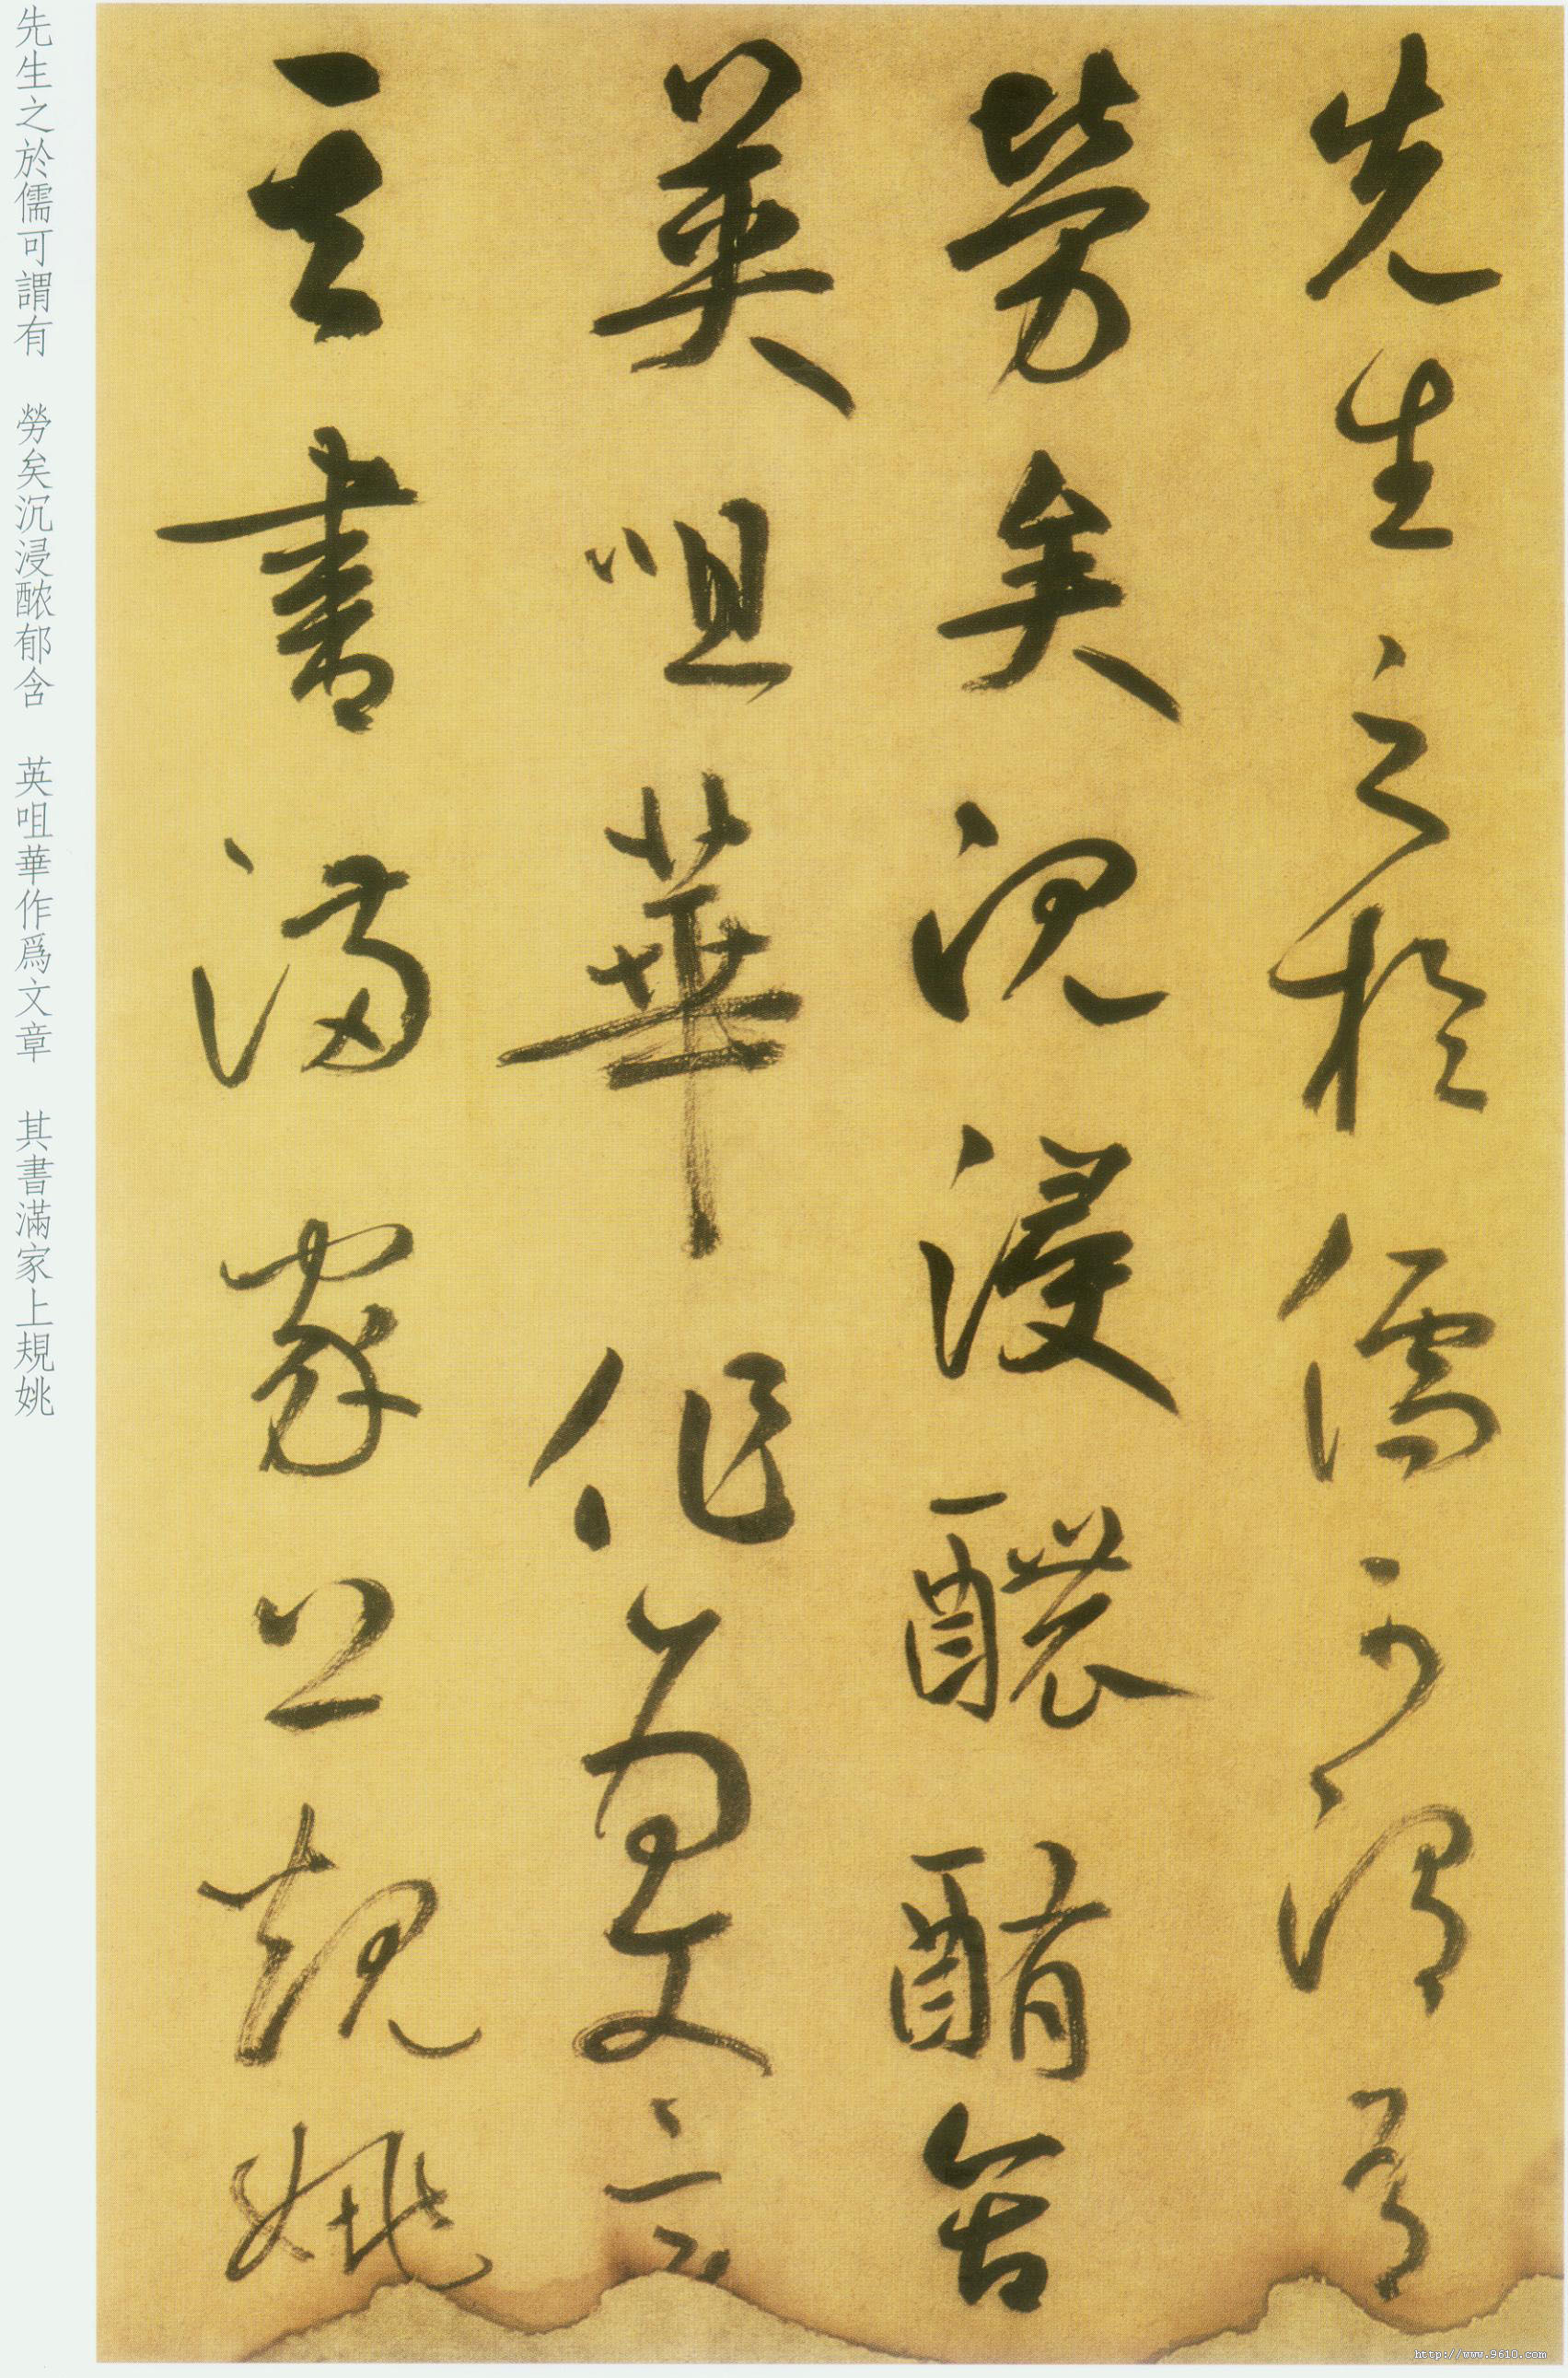 先生之於儒可謂有
勞矣沉浸醲郁含
英咀華作爲文章
其書滿家上規姚
先生之於儒可謂有 勞矣沉浸醲郁含 英咀華作爲文章 其書滿家上規姚
http://www.9610.com